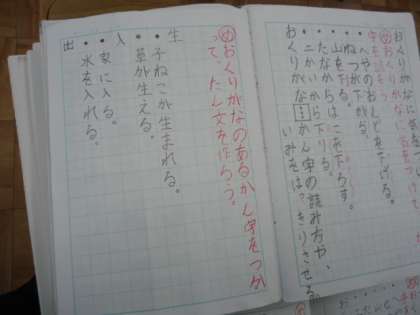 おくりがな
字をはろう
へやのおんどを下げる。
ねつが下がる。
山を下る。
たなからはこを下ろす。
二かいから下りる。
おくりがな…かん字の読み方や、
いみをはっきりさせる
め おくりがなのあるかん字をつか
って、たん文を作ろう。
生
・子ねこが生まれる。
・草が生える。
入
・家に入る。
・水を入れる。
出